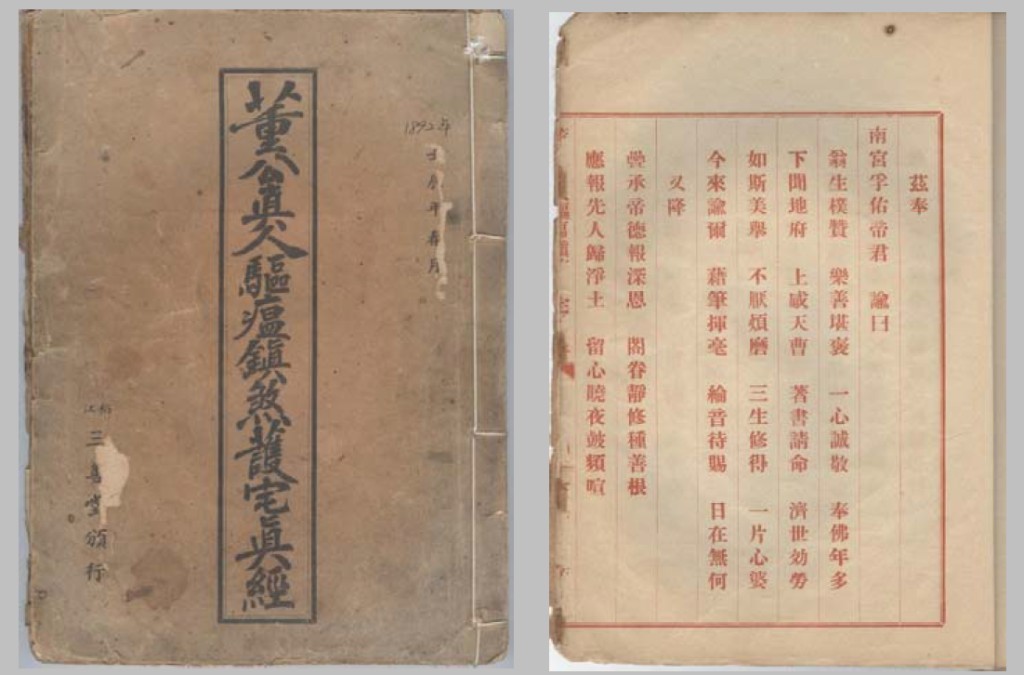 1892年
壬辰年春月
董公眞人驅瘟鎮煞護宅眞經
三善堂頒行
茲奉
南宮孚佑帝君 諭曰
翁生樸贊 樂善堪褒 一心誠敬 奉佛年多
下聞地府 上感天曹 著書請命 濟世効勞
如斯美舉 不厭煩磨 三生修得 一片心婆
今來諭爾 藉筆揮毫 綸音待賜 日在無何
又降
疊承帝德報深恩 閤眷靜修種善根
應報先人歸淨土 留心曉夜皷頻喧